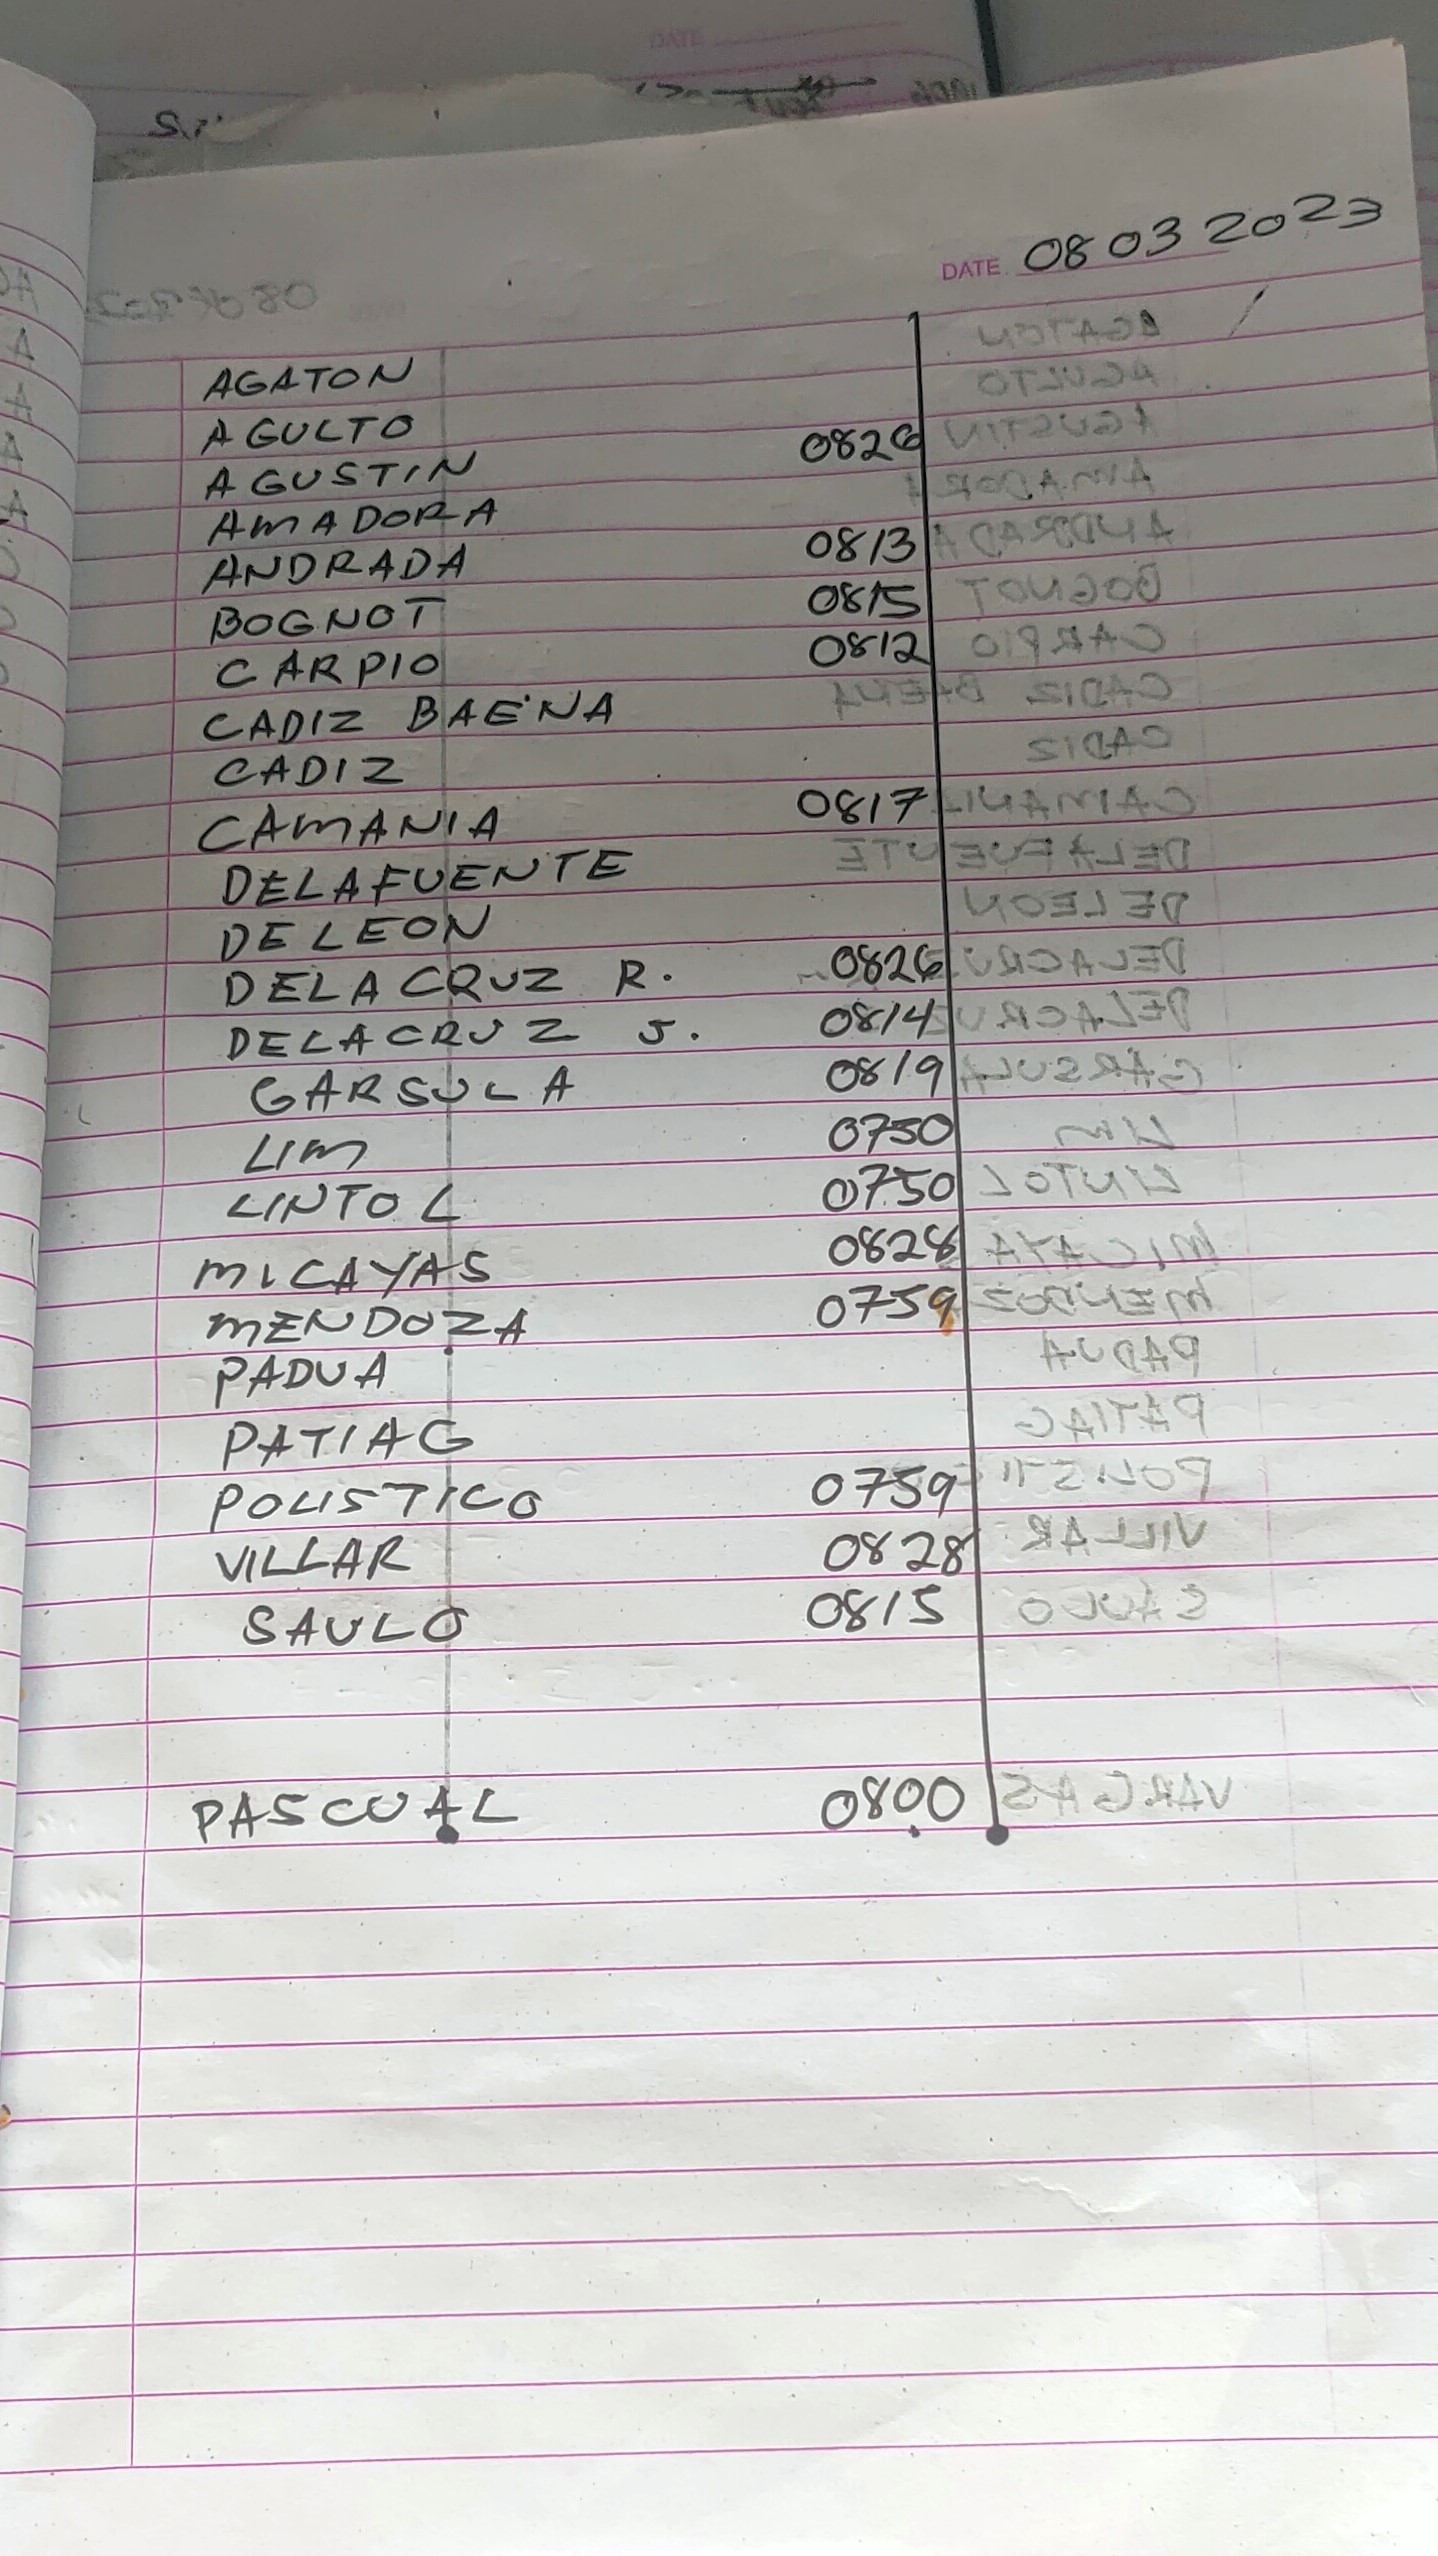 DATE 08 03 2023
AGATON
AGULTO
AGUSTIN 0826
AMADORA
ANDRADA 0813
BOGNOT 0815
CARPIO 0812
CADIZ BAENA
CADIZ
CAMANIA 0817
DELAFUENTE
DELEON
DELACRUZ R. 0826
DELACRUZ J. 0814
GARSULA 0819
LIM 0750
LINTOL 0750
MICAYAS 0828
MENDOZA 0759
PADUA
PATIAG
POLISTICO 0759
VILLAR 0828
SAULO 0815
PASCUAL 0800